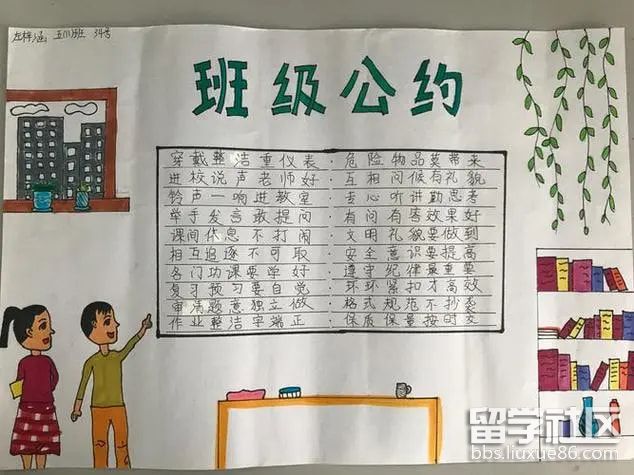 左梓涵 五(1)班 34号
班级公约
穿戴整洁重仪表·危险物品莫带来
进校说声老师好·互相问候有礼貌
铃声一响进教室·专心听讲勤思考
举手发言敢提问·有问有答效果好
课间休息不打闹·文明礼貌要做到
相互追逐不可取·安全意识要提高
各门功课要学好·遵守纪律最重要
复习预习要自觉·环环紧扣才高效
审清题意独立做·格式规范不抄袭
作业整洁字端正·保质保量按时交
留学社区
bbs.liuxue86.com